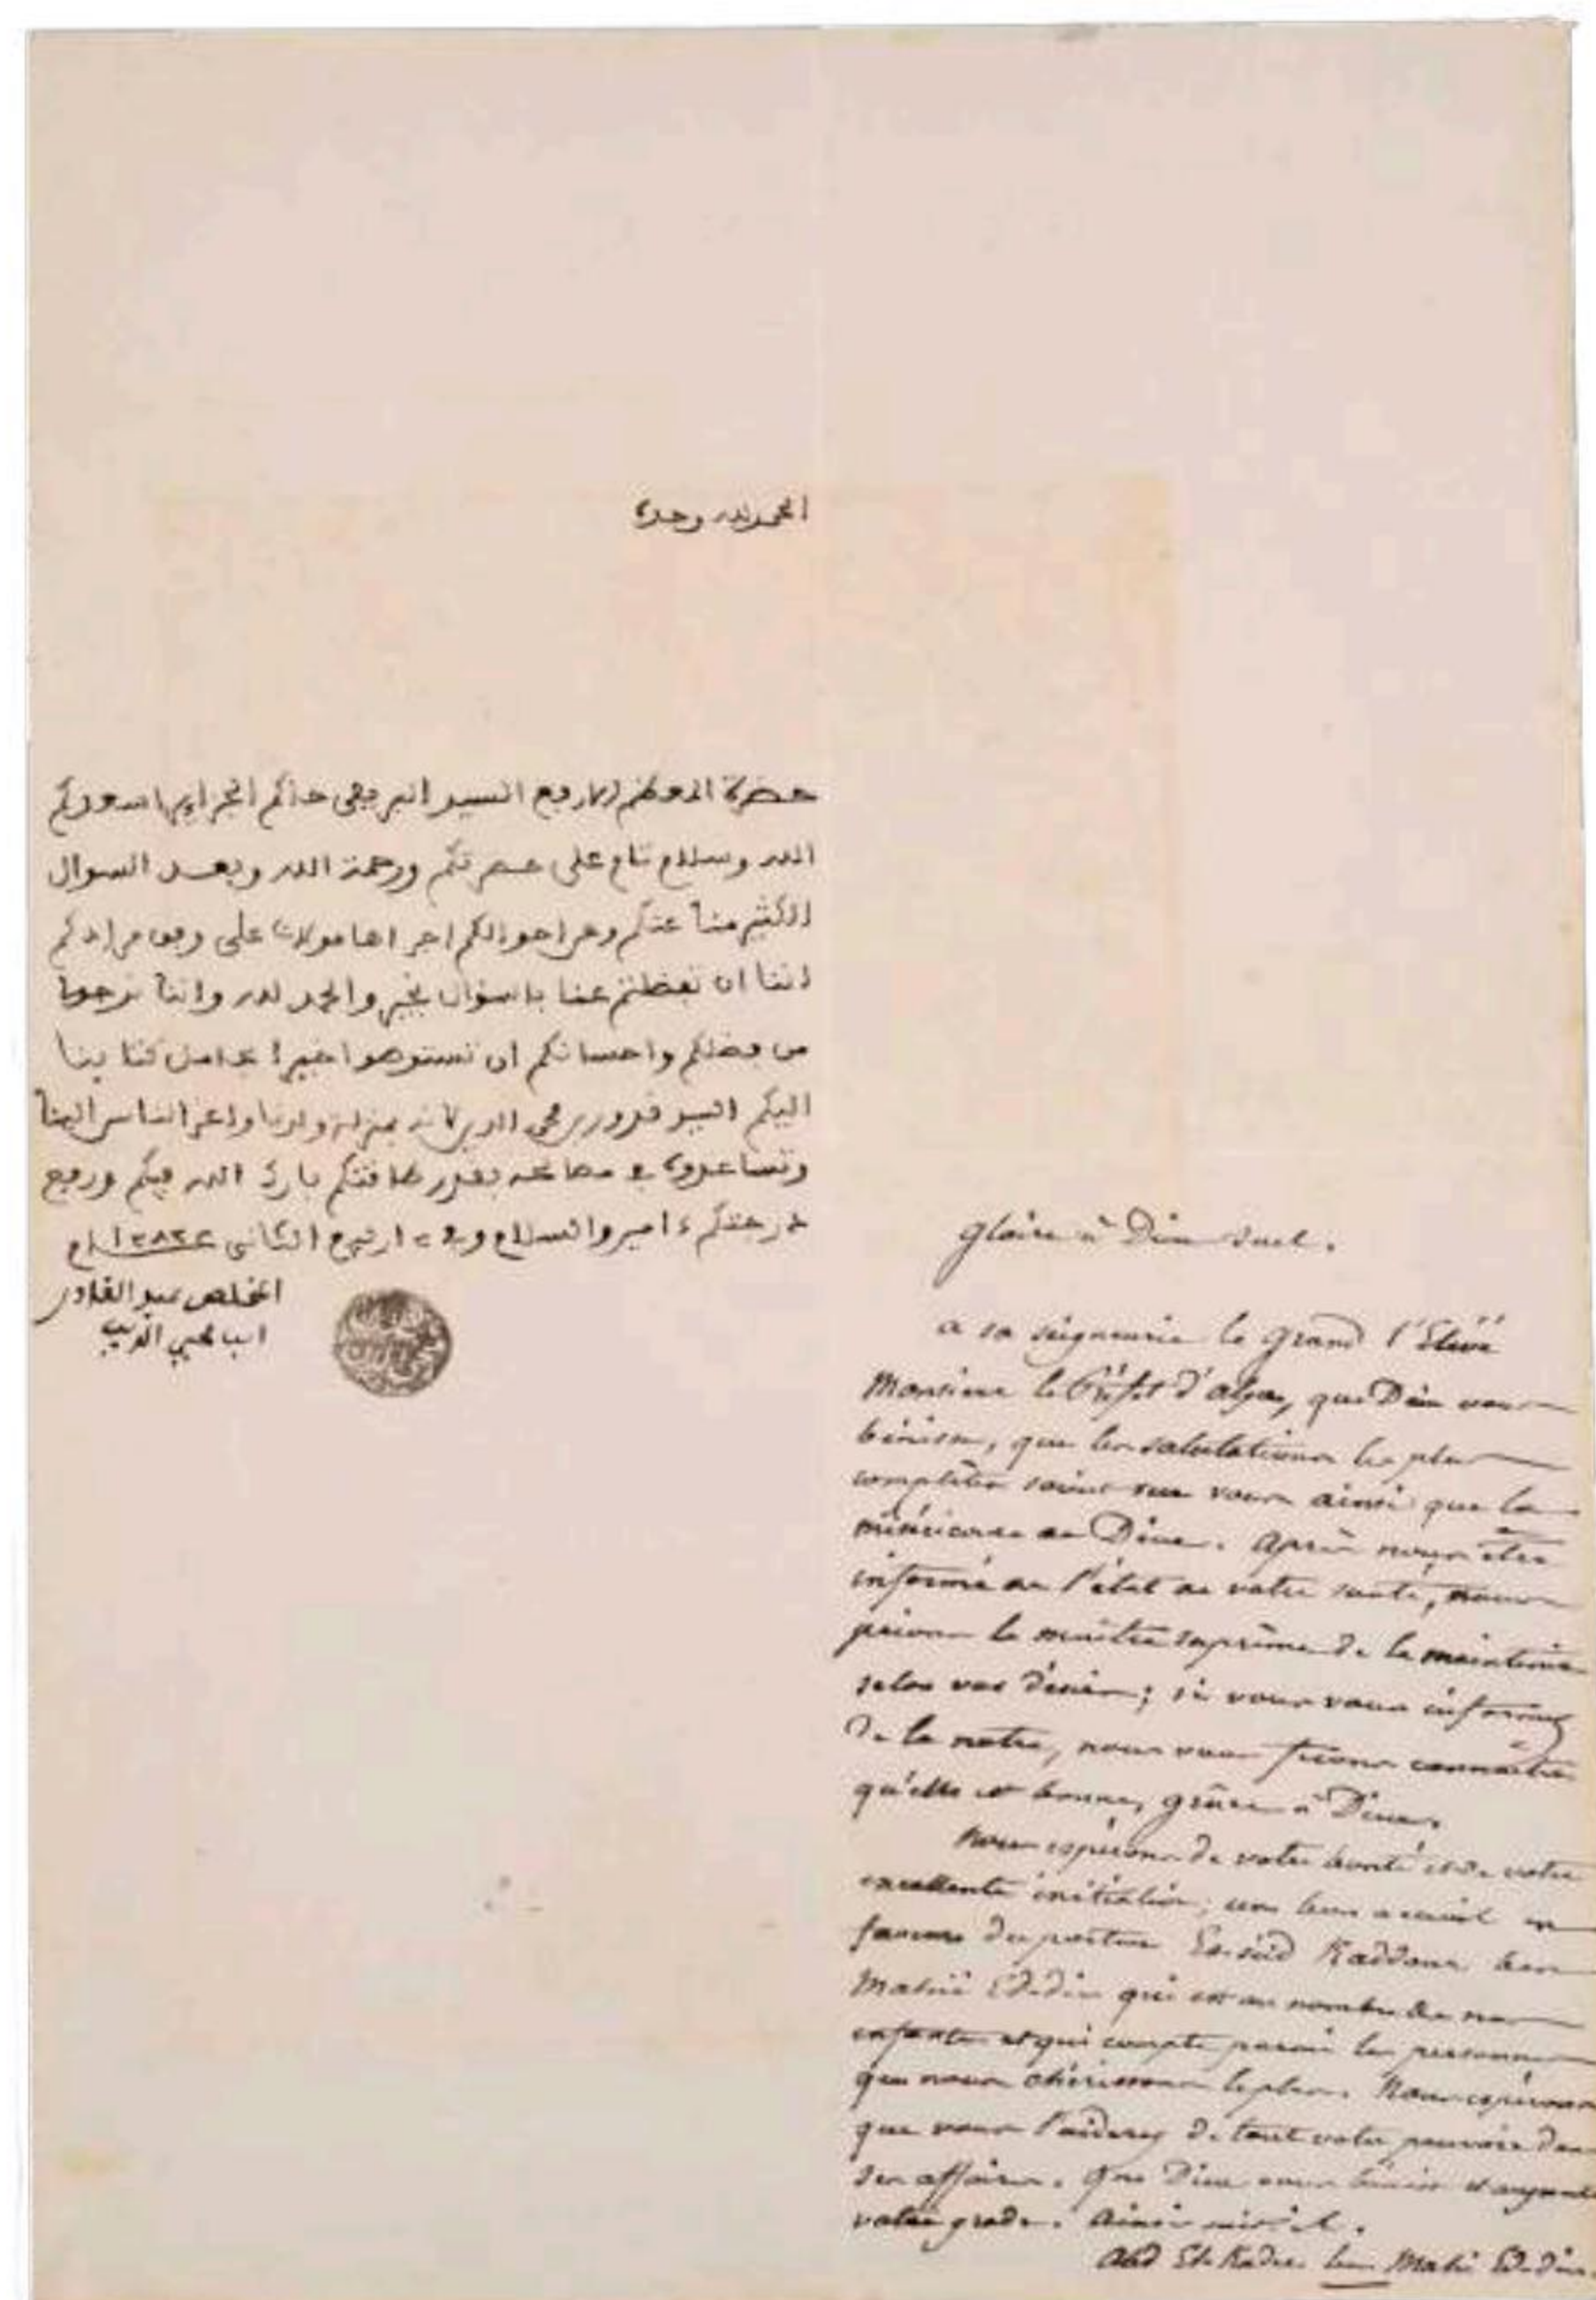 الحمد لله وحده
حضرة المعظم الارفع السيد البريفى حاكم الجزاير اسعدكم
الله وسلام تام على حضرتكم ورحمة الله وبعد السوال
الكثير منا عنكم وعن احوالكم اجراها مولانا على وفق مرادكم
اننا ان تفضلتم عنا بالسوال بخير والحمد لله واننا نرجوا
من فضلكم واحسانكم ان تستوصوا خيرا بحامل كتابنا
اليكم السيد قدور بن محى الدين فانه بمنزلة ولدنا واعز الناس الينا
وتساعدوه في مصالحه بقدر طاقتكم بارك الله فيكم ورفع
درجتكم ءامين والسلام وفي ربيع الثاني
المخلص عبد القادر
ابن محيي الدين
Gloire à Dieu seul.
a sa seigneurie le grand l'Elevé
Monsieur le Préfet d'alger, que Dieu vous
bénisse, que les salutations les plus
complètes soient sur vous ainsi que la
miséricorde de Dieu. Après nous être
informé de l'état de votre santé, nous
prions le maître suprême de la maintenir
selon vos désirs; si vous vous informez
de la notre, nous vous ferons connaître
qu'elle est bonne, grâce à Dieu.
Nous espérons de votre bonté et de votre
excellente initiative, un bon accueil en
faveur du porteur Es-siid Kaddour ben
Mahii Ed-din qui est au nombre de nos
enfants et qui compte parmi les personnes
que nous chérissons le plus. Nous espérons
que vous l'aiderez de tout votre pouvoir dans
ses affaires. Que Dieu vous bénisse et augmente
votre grade. Ainsi soit-il.
Abd El-Kader ben Mahi Ed-din.